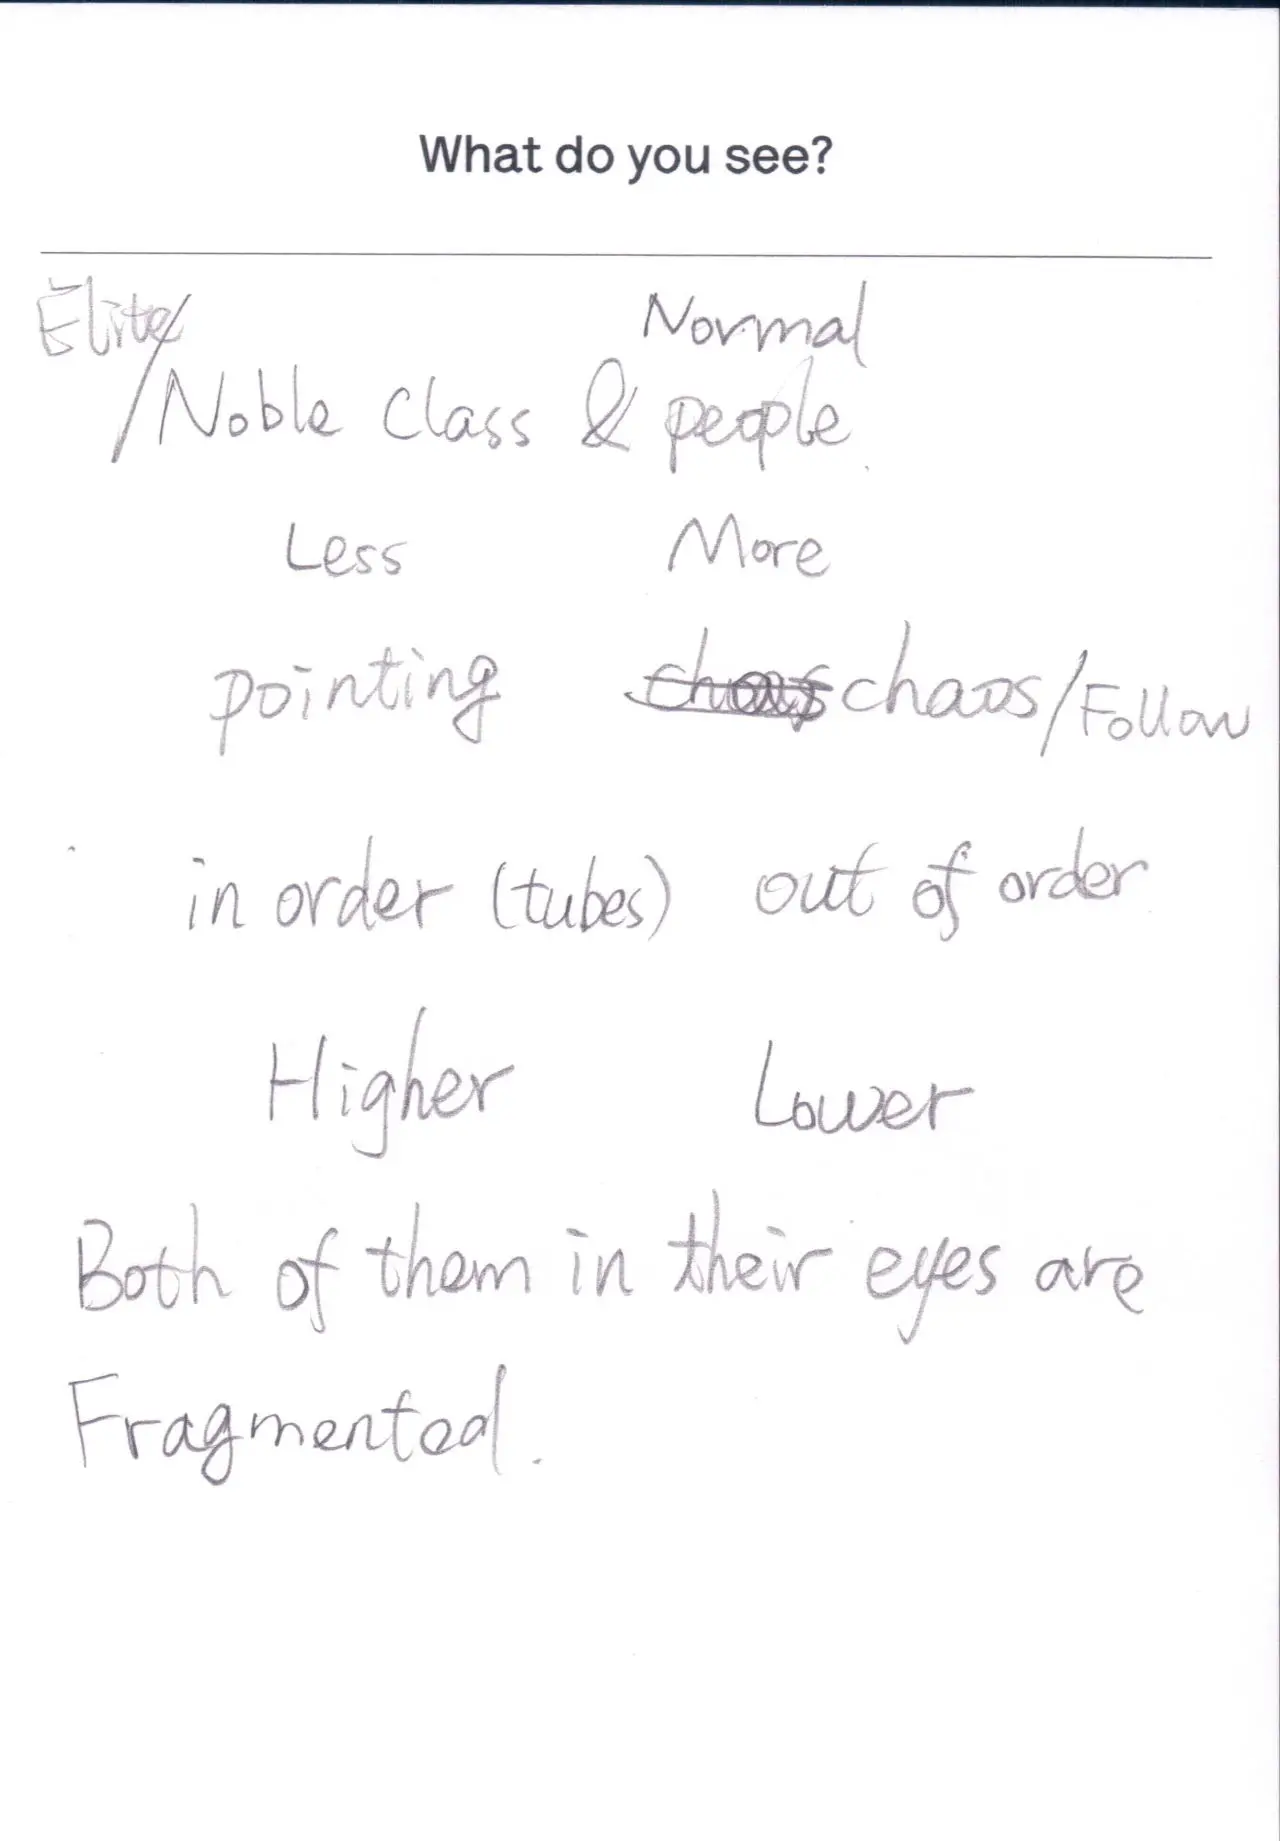 What do you see?
Elite
Normal
/Noble Class & people
Less More
pointing chaos chaos/Follow
in order (tubes) out of order
Higher Lower
Both of them in their eyes are
Fragmented.